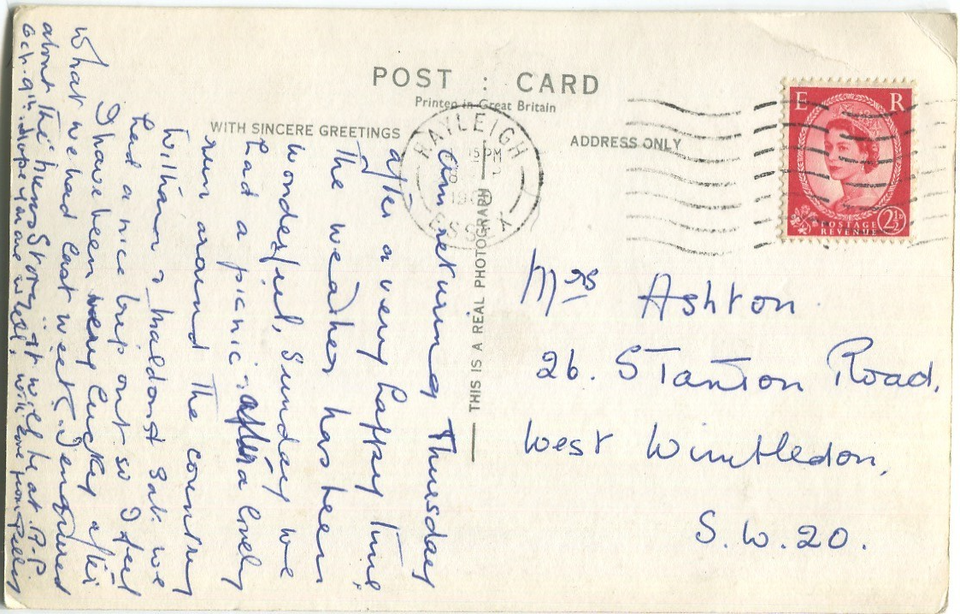 POST CARD
Printed in Great Britain
WITH SINCERE GREETINGS
ADDRESS ONLY
RAYLEIGH
ESSEX
E R
POSTAGE
REVENUE
2½D
THIS IS A REAL PHOTOGRAPH
Am returning Thursday
after a very happy time,
The weather has been
wonderful, Sunday we
had a picnic & a lovely
run around the country
Witham & Maldon Sat. we
had a nice trip out so I feel
I have been very lucky after
what we had last week. I enquired
about the news Story it will be at P.P.
Och. 9th. hope you are well, with love from
Mrs Ashton.
26. Stanton Road.
West Wimbledon,
S.W.20.